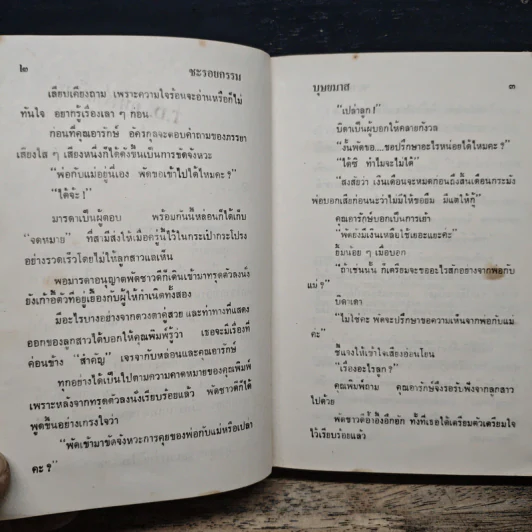 ๒
ชะรอยกรรม
เลียบเคียงถาม เพราะความใจร้อนจะอ่านหรือก็ไม่
ทันใจ อยากรู้เรื่องเลา ๆ ก่อน
ก่อนที่คุณอารักษ์ อัครกุลจะตอบคำถามของภรรยา
เสียงใส ๆ เสียงหนึ่งก็ได้ดังขึ้นเป็นการขัดจังหวะ
“พ่อกับแม่อยู่นี่เอง พัดขอเข้าไปได้ไหมคะ?”
“ได้จ้ะ!”
มารดาเป็นผู้ตอบ พร้อมกันนี้หล่อนก็ได้เก็บ
“จดหมาย” ที่สามีส่งให้เมื่อครู่นี้ไว้ในกระเป๋ากระโปรง
อย่างรวดเร็วโดยไม่ให้ลูกสาวแลเห็น
พอมารดาอนุญาตพัดชาวดีก็เดินเข้ามาทรุดตัวลงนั่ง
ยังเก้าอี้ตัวที่อยู่เยื้องกับผู้ให้กำเนิดทั้งสอง
มีอะไรบางอย่างจากดวงตาคู่สวย และท่าทางที่แสดง
ออกของลูกสาวได้บอกให้คุณพิมพ์รู้ว่า เธอจะมีเรื่องที่
ค่อนข้าง “สำคัญ” เจรจากับหล่อนและคุณอารักษ์
ทุกอย่างได้เป็นไปตามความคาดหมายของคุณพิมพ์
เพราะหลังจากทรุดตัวลงนั่งเรียบร้อยแล้ว พัดชาวดีก็ได้
พูดขึ้นอย่างเกรงใจว่า
“พัดเข้ามาขัดจังหวะการคุยของพ่อกับแม่หรือเปล่า
คะ?”
บุษยมาส
๓
“เปล่าลูก!”
บิดาเป็นผู้บอกให้คลายกังวล
“งั้นพัดขอ....ขอปรึกษาอะไรหน่อยได้ไหมคะ?”
“ได้ซิ ทำไมจะไม่ได้”
“สงสัยว่า เงินเดือนจะหมดก่อนถึงสิ้นเดือนกระมัง
พ่อบอกเสียก่อนนะว่าไม่มีให้ขอยืม มีแต่ให้กู้”
คุณอารักษ์บอกเป็นการเย้า
“พัดยังมีเงินเหลือใช้เยอะแยะค่ะ”
ยิ้มน้อย ๆ เมื่อบอก
“ถ้าเช่นนั้น ก็เตรียมจะขออะไรสักอย่างจากพ่อกับ
แม่?”
บิดาเดา
“ไม่ใช่ค่ะ พัดจะปรึกษาขอความเห็นจากพ่อกับแม่
ค่ะ”
ชี้แจงให้เข้าใจเสียงอ่อนโยน
“เรื่องอะไรลูก?”
คุณพิมพ์ถาม คุณอารักษ์จึงรอรับฟังจากลูกสาว
ไปด้วย
พัดชาวดีอ้ำอึ้งอีกอึก ทั้งที่เธอได้เตรียมตัวเตรียมใจ
ไว้เรียบร้อยแล้ว